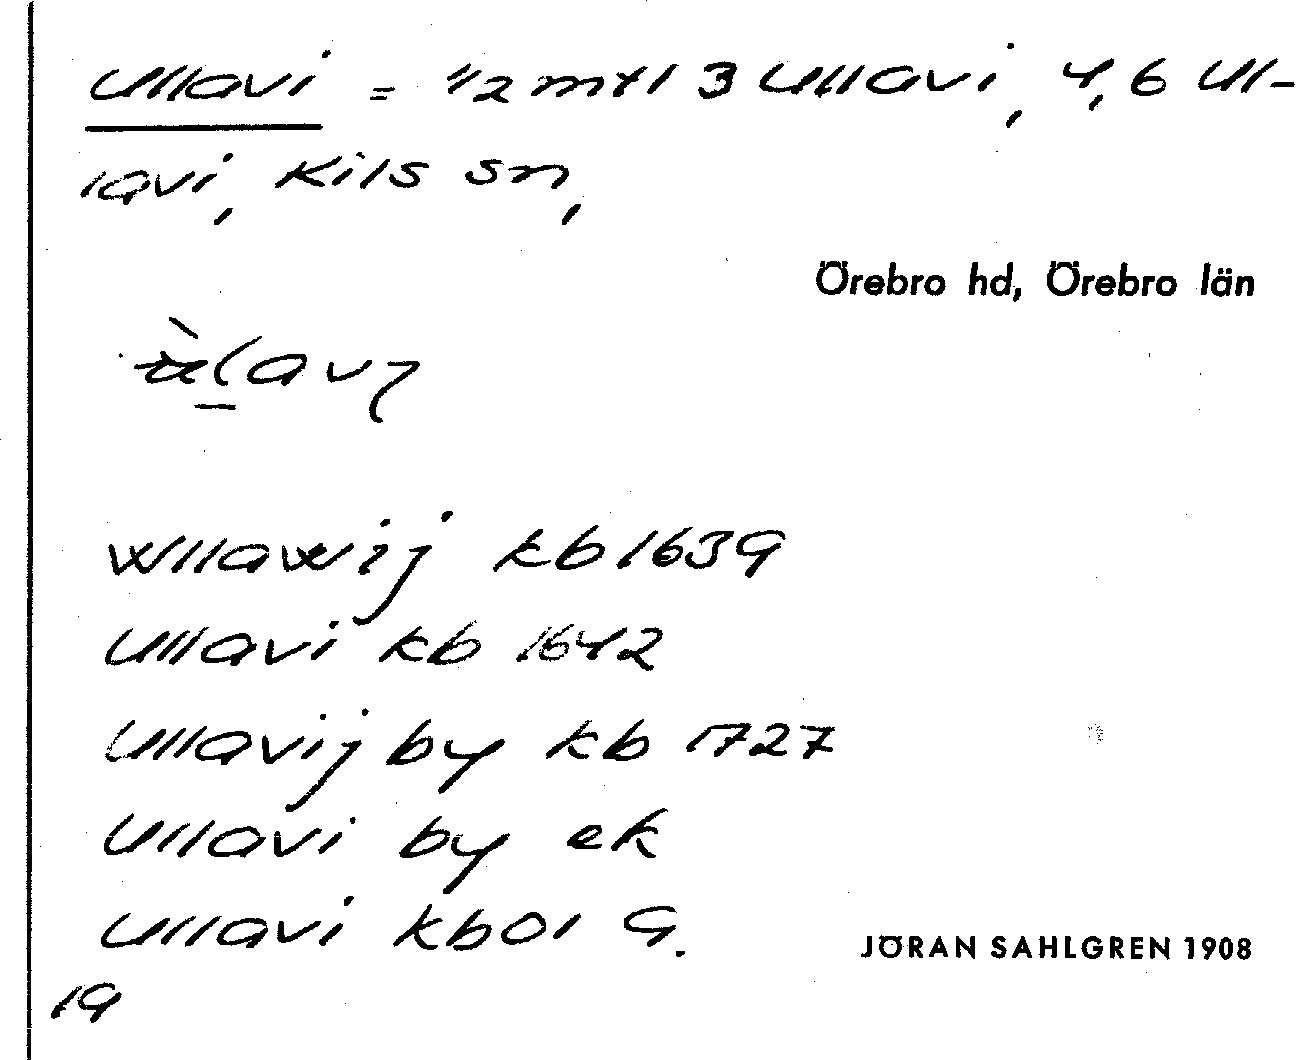 Ullavi = 1/2 mtl 3 Ullavi, 4, 6 Ul-
lavi, Kils sn,
Örebro hd, Örebro län
Wllawij kb 1639
Ullavi kb 1642
Ullavij by kb 1727
Ullavi by ek
Ullavi kb01 9.
JÖRAN SAHLGREN 1908
19